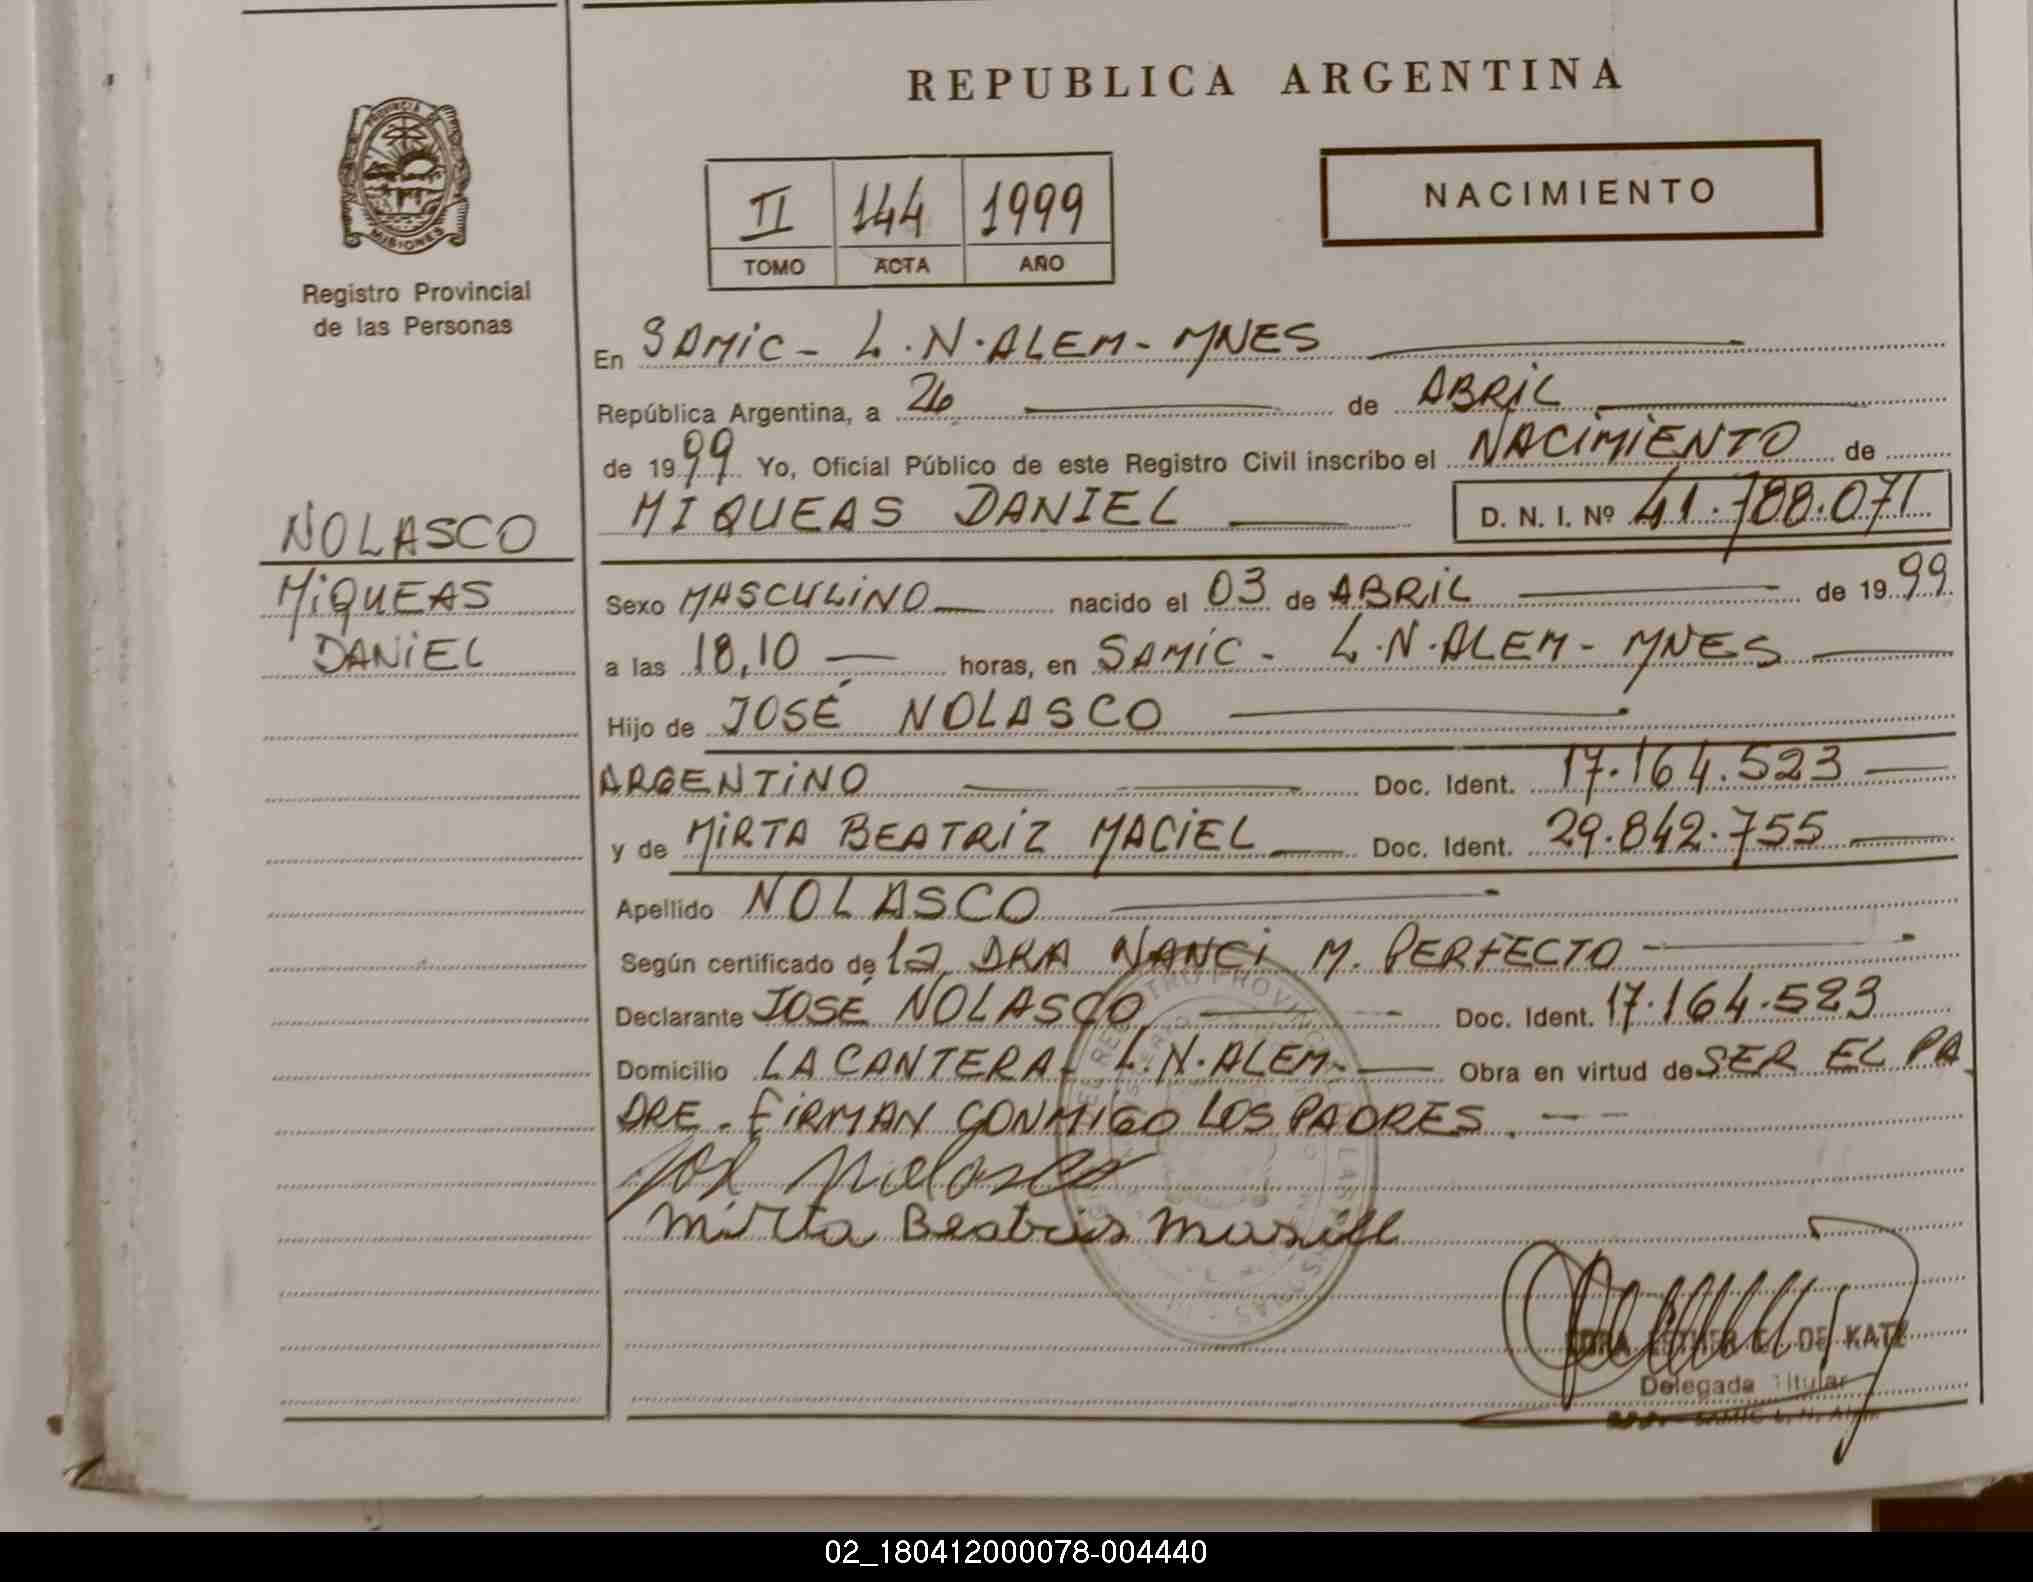 REPUBLICA ARGENTINA
PROVINCIA DE
MISIONES
Registro Provincial
de las Personas
II 144 1999
TOMO ACTA AÑO
NACIMIENTO
En SAMIC - L.N.ALEM - MNES
República Argentina, a 26 de ABRIL
de 1999 Yo, Oficial Público de este Registro Civil inscribo el NACIMIENTO de
MIQUEAS DANIEL D. N. I. Nº 41.788.071
NOLASCO
MIQUEAS
DANIEL
Sexo MASCULINO nacido el 03 de ABRIL de 1999
a las 18,10 horas, en SAMIC - L.N.ALEM - MNES
Hijo de JOSÉ NOLASCO
ARGENTINO Doc. Ident. 17.164.523
y de MIRTA BEATRIZ MACIEL Doc. Ident. 29.842.755
Apellido NOLASCO
Según certificado de la DRA NANCI M. PERFECTO
Declarante JOSÉ NOLASCO Doc. Ident. 17.164.523
Domicilio LA CANTERA - L.N.ALEM - Obra en virtud de SER EL PA
DRE - FIRMAN CONMIGO LOS PADRES.
Nolasco
Mirta Beatris
ESTHER E. DE KATZ
Delegada Titular
SAMIC L. N. Alem
02_180412000078-004440